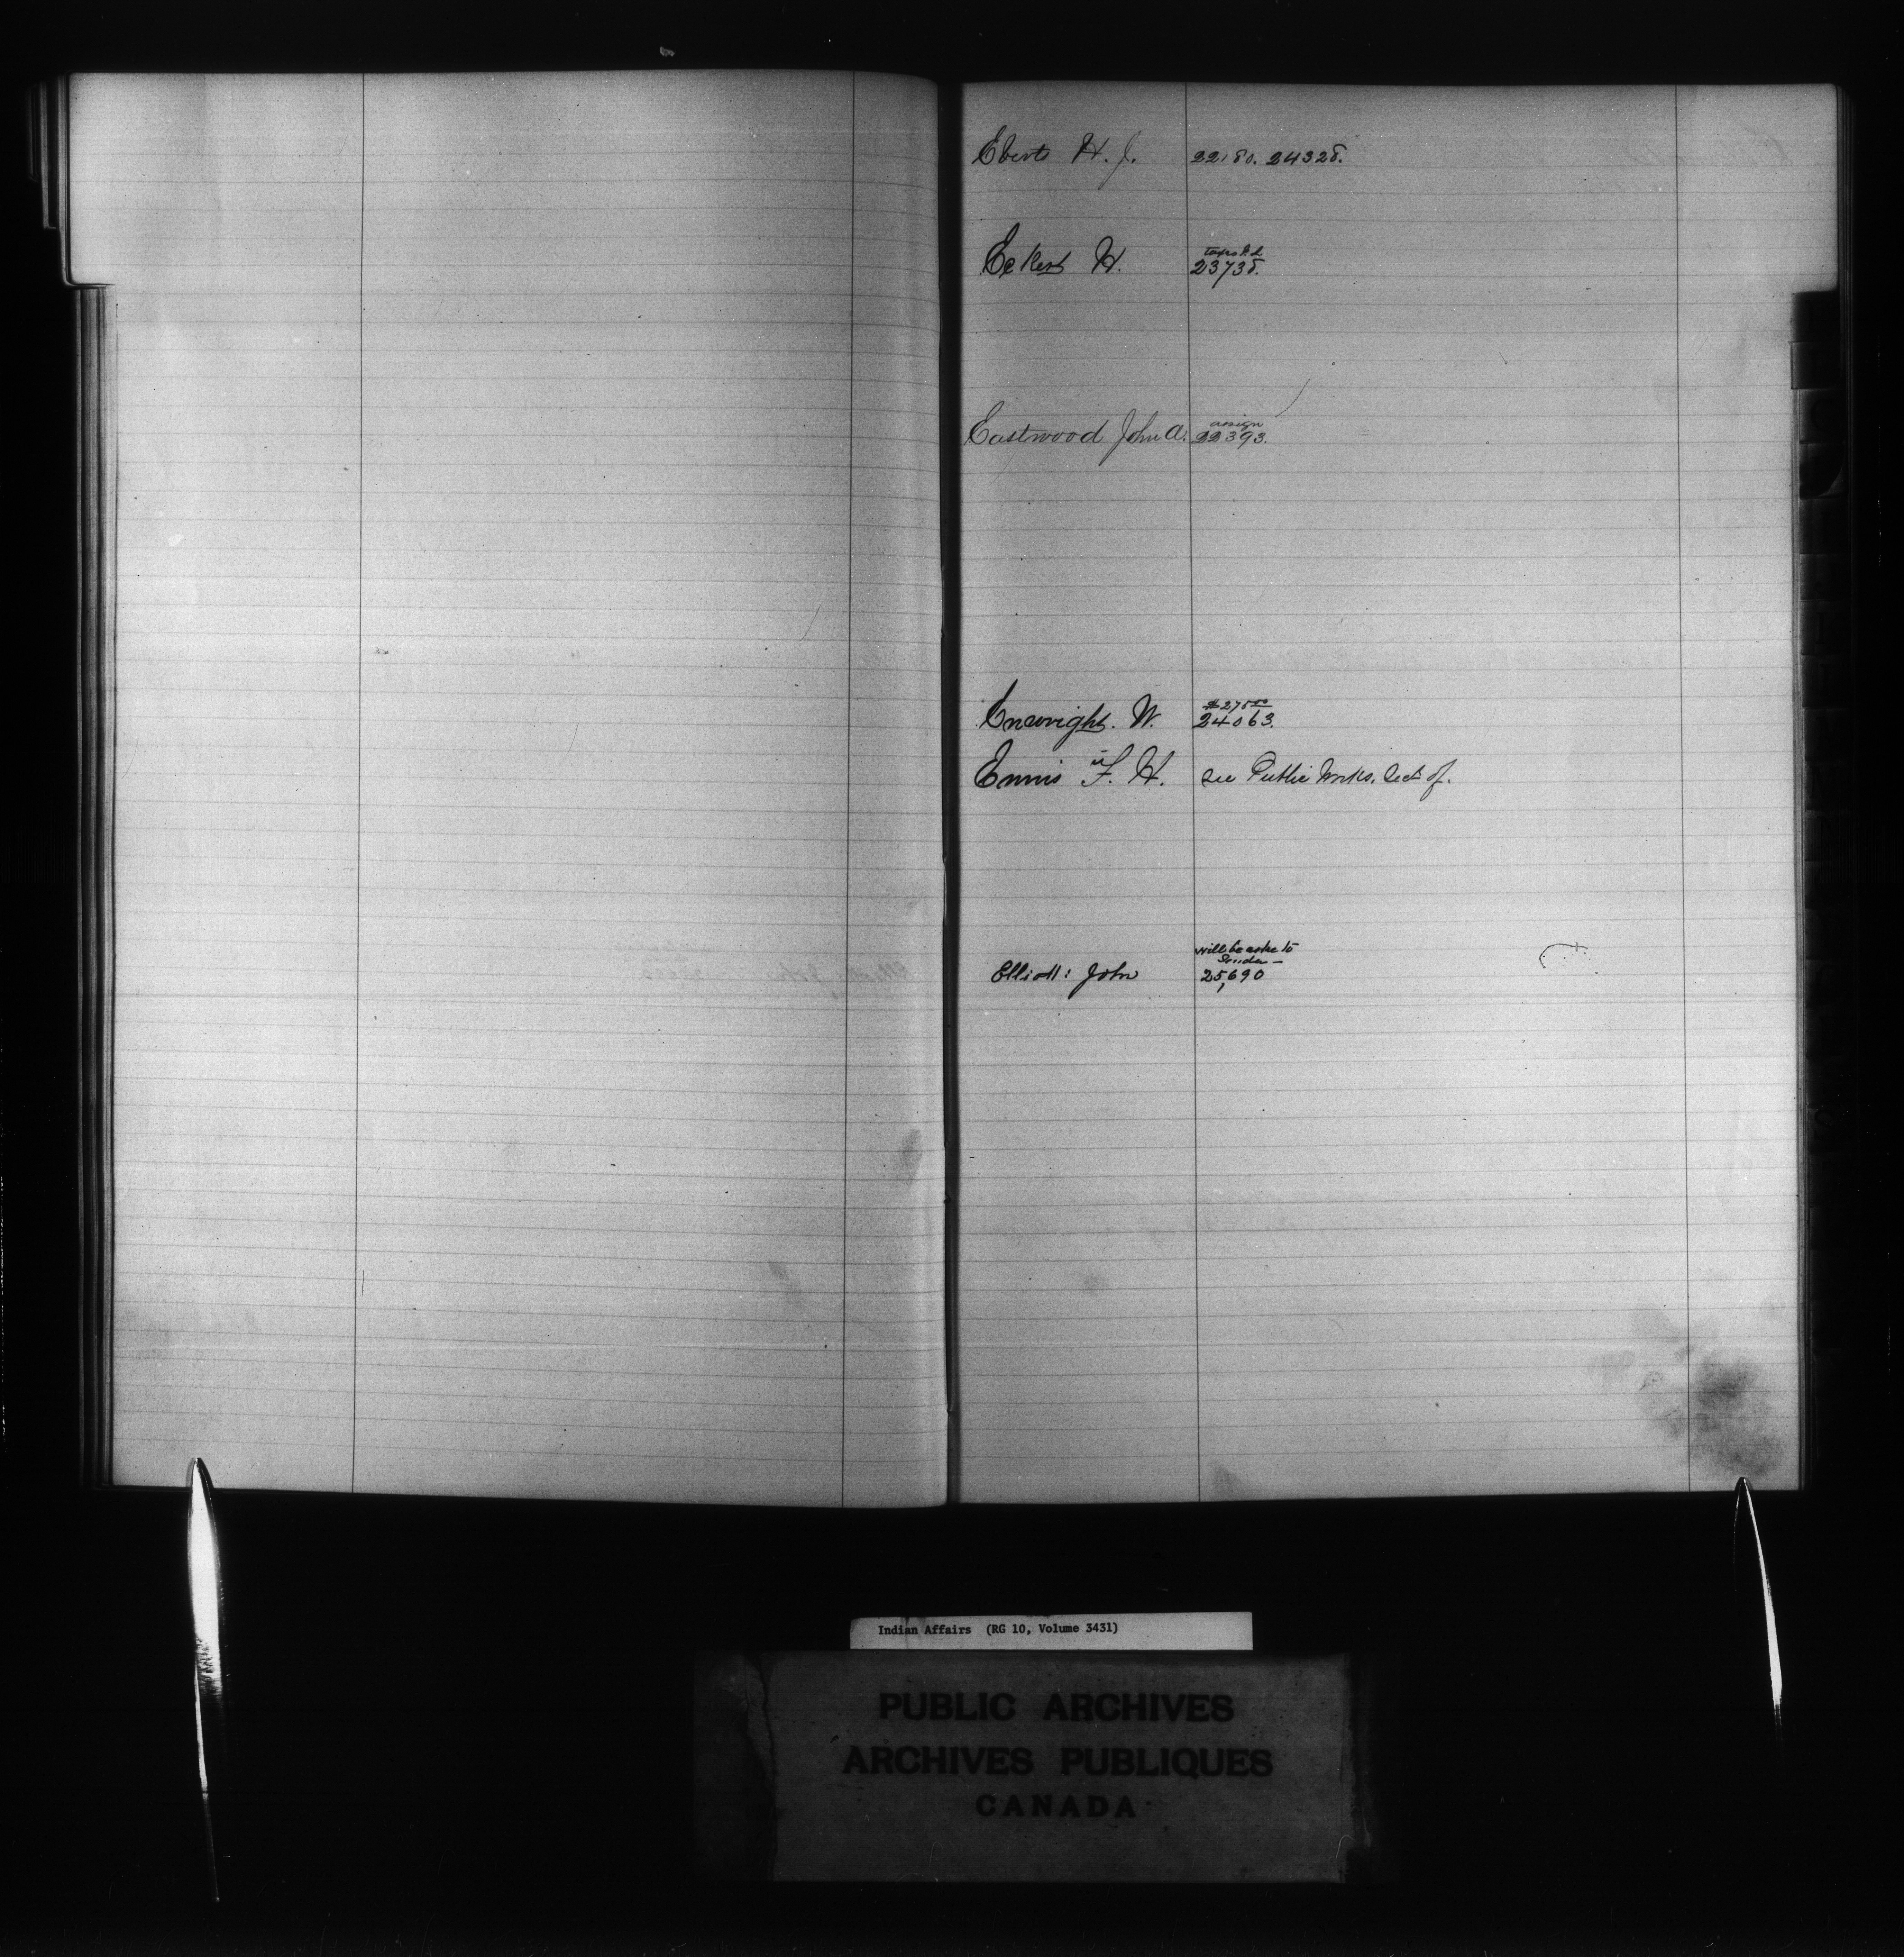 Eberts H. J. 22180. 24328.
Eckert H. taxes Pd
23738.
Eastwood John A. assign
22393.
Enwright. W. $275 00
24063.
Ennis F. H. see Public Works, Sect of.
Elliott: John will be aske to
25,690
Indian Affairs (RG 10, Volume 3431)
PUBLIC ARCHIVES
ARCHIVES PUBLIQUES
CANADA